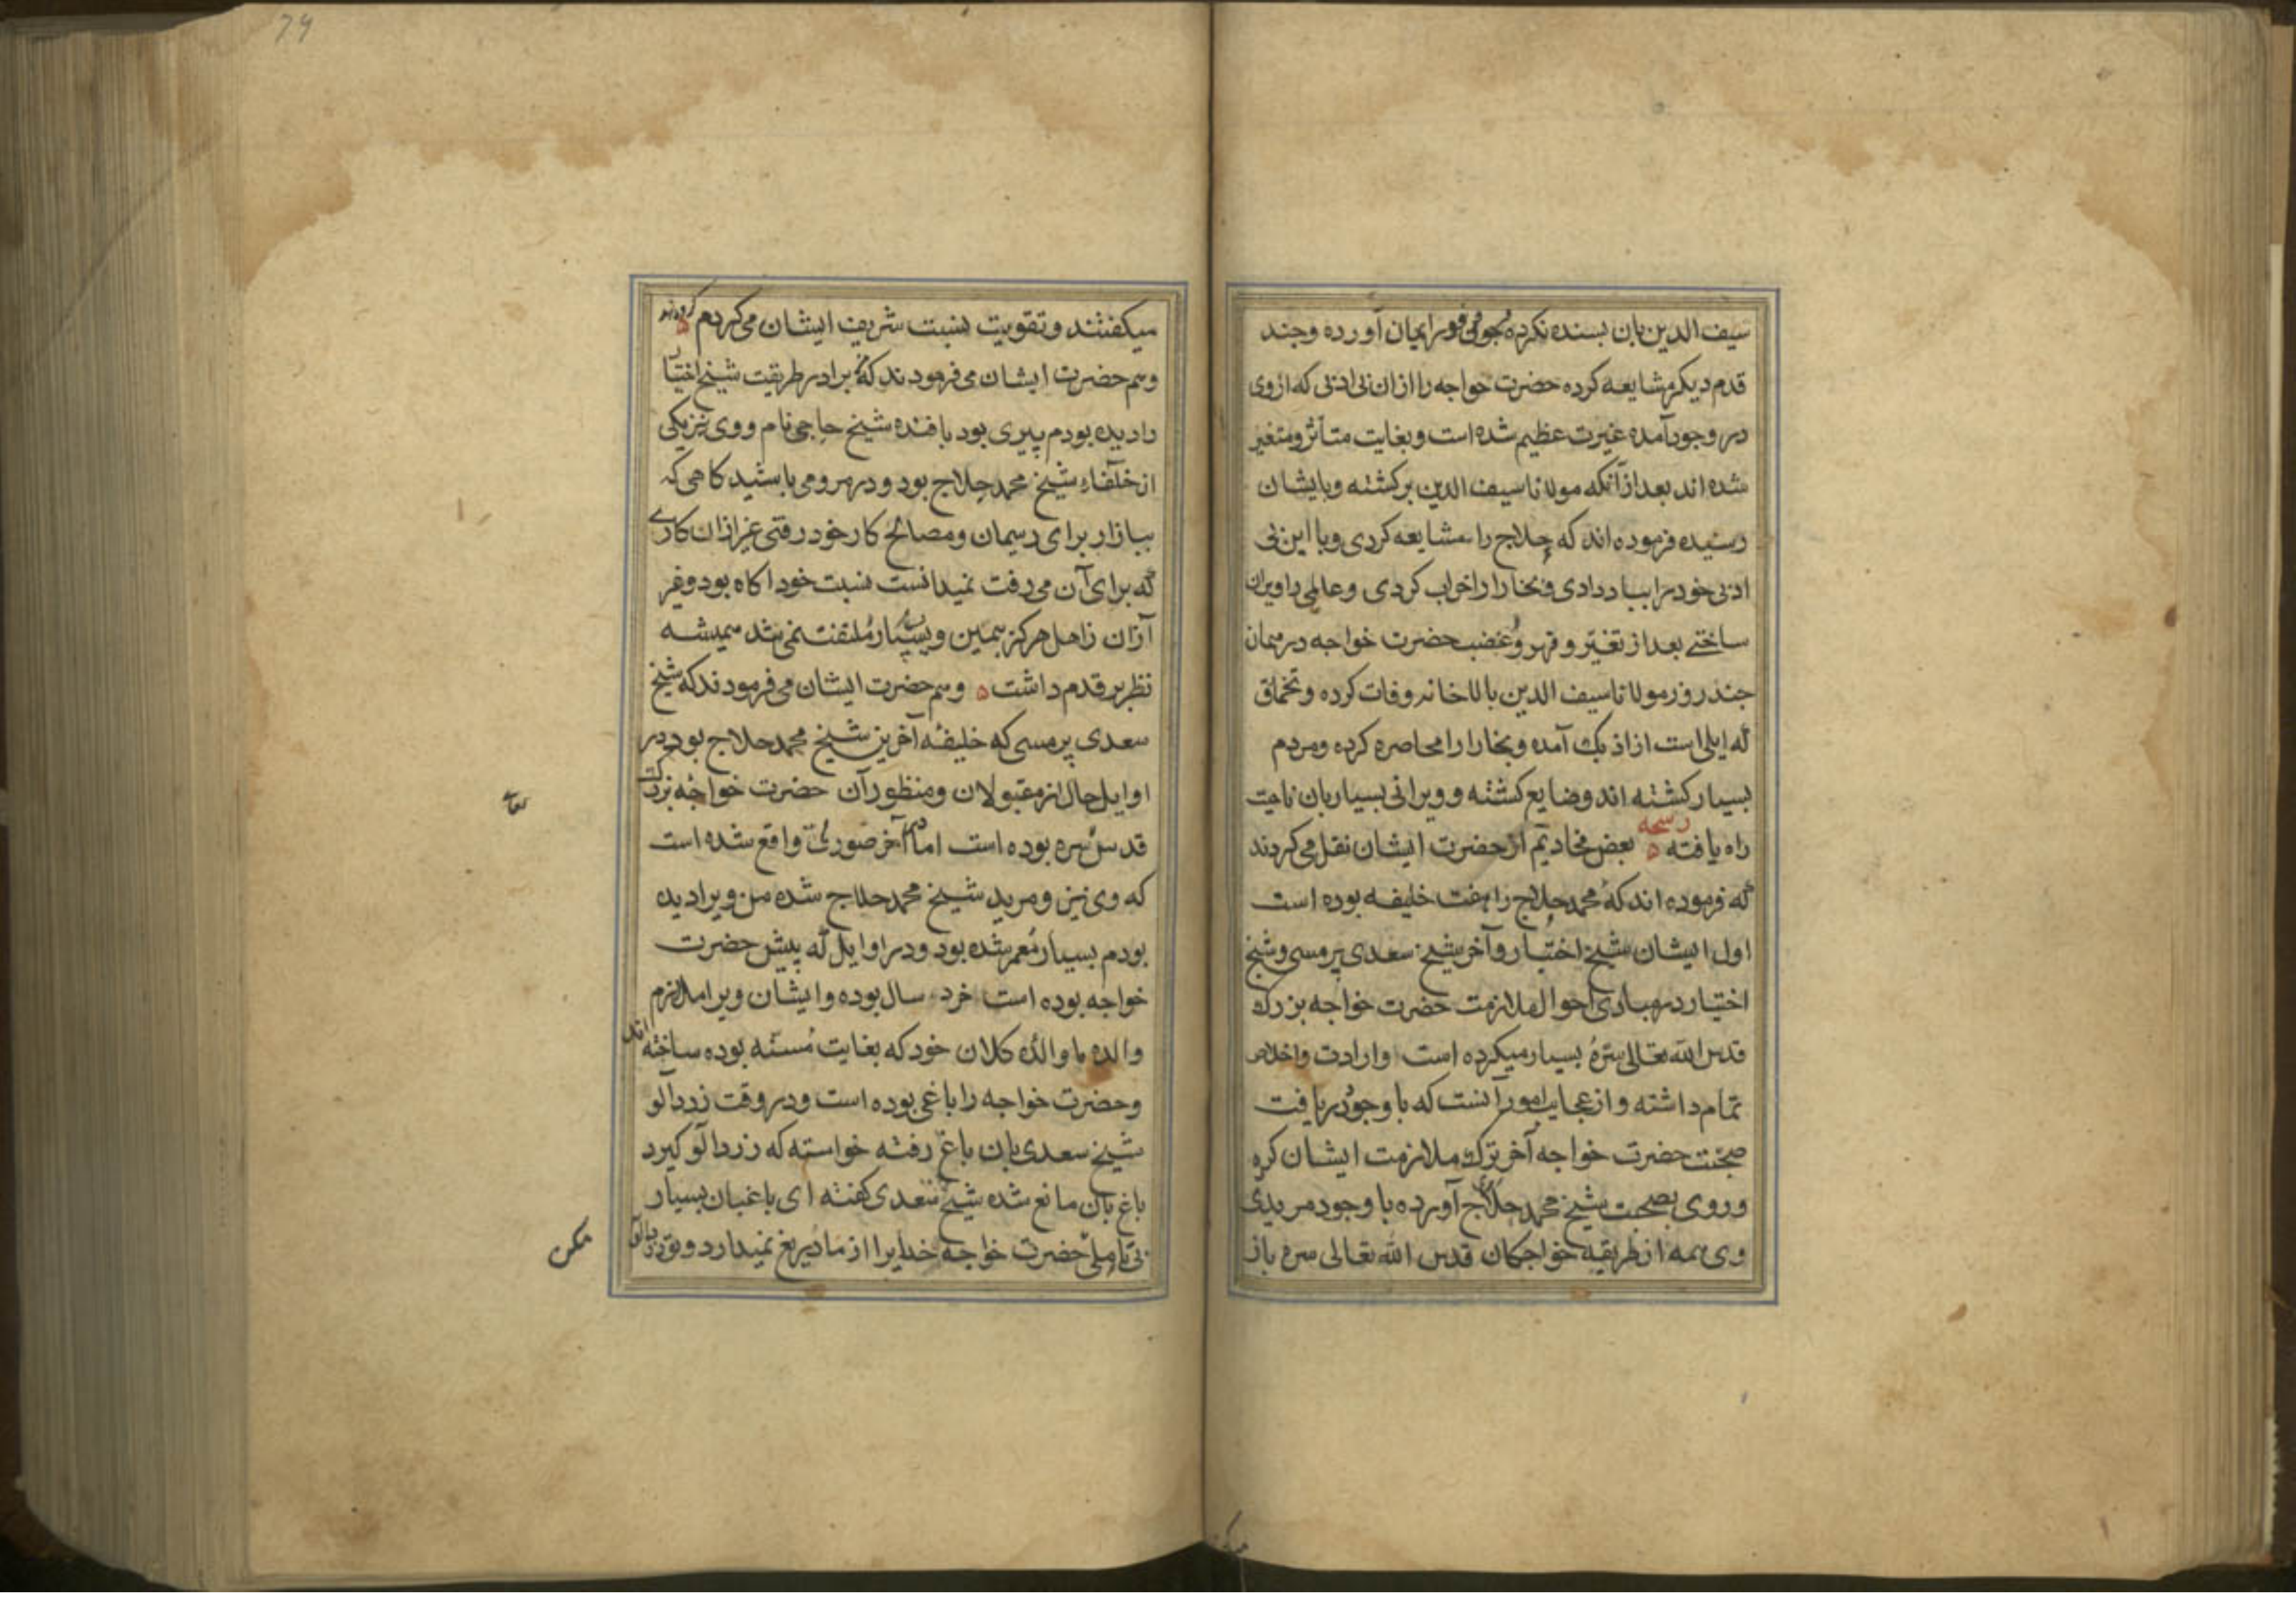 سیف الدین بان بسنده نکرده بجوئی فورا یمان آورده و چند
قدم دیکر مشایعه کرده حضرت خواجه را ازان بی ادبی که از وی
در وجود آمده غیرت عظیم شده است و بغایت متأثر و متغیر
شده اند بعد از آنکه مولانا سیف الدین برکشته و بایشان
رسیده فرموده اند که حلاج را مشایعه کردی و با این بی
ادبی خود مرا بباد دادی و بخارا را خراب کردی و عالمی را ویران
ساختی بعد از تغیر و قهر و غضب حضرت خواجه در همان
چند روز مولانا سیف الدین بالاخانه وفات کرده و تخماق
که ایلی است از اذبک آمده و بخارا را محاصره کرده و مردم
بسیار کشته اند و ضایع کشته و ویرانی بسیار بان ناحیت
راه یافته رشحه بعض مخادیم از حضرت ایشان نقل می کردند
که فرموده اند که محمد حلاج را هفت خلیفه بوده است
اول ایشان شیخ اختیار و آخر شیخ سعدی پرمسی و شیخ
اختیار در مبادی احوال ملازمت حضرت خواجه بزرک
قدس الله تعالی سره بسیار میکرده است و ارادت و اخلاص
تمام داشته و از عجایب امور آنست که با وجود دریافت
صحبت حضرت خواجه آخر ترک ملازمت ایشان کرده
و روی بصحبت شیخ محمد حلاج آورده با وجود مریدی
وی همه از طریقه خواجکان قدس الله تعالی سره باز
میکفتند و تقویت نسبت شریف ایشان می کردم کردند
و هم حضرت ایشان می فرمودند که من برادر طریقت شیخ اختیار
را دیده بودم پیری بود بافنده شیخ حاجی نام و وی نیز یکی
از خلفاء شیخ محمد حلاج بود و در مرو می باشید کاهی که
ببازار برای ریسمان و مصالح کار خود رفتی غیر ازان کاری
که برای آن می رفت نمیدانست نسبت خود آکاه بود و غیر
ازان زاهل هرکز بیمین و یسار ملتفت نمی شد همیشه
نظر بر قدم داشت و هم حضرت ایشان می فرمودند که شیخ
سعدی پرمسی که خلیفه آخرین شیخ محمد حلاج بود در
اوایل حال از مقبولان و منظور آن حضرت خواجه بزرک
قدس سره بوده است اما در آخر صورتی واقع شده است
که وی نیز و مرید شیخ محمد حلاج شده من ویرا دیده
بودم بسیار معمر شده بود و در اوایل که پیش حضرت
خواجه بوده است خرد سال بوده و ایشان ویرا ملازم
والده ما والده کلان خود که بغایت مسنه بوده ساخته اند
و حضرت خواجه را باغی بوده است و در وقت زردآلو
شیخ سعدی بان باغ رفته خواسته که زردآلو کیرد
باغ بان مانع شده شیخ سعدی کفته ای باغبان بسیار
بی تاملی حضرت خواجه خدایرا از ما دریغ نمیدارد و تو زردآلو
مکن